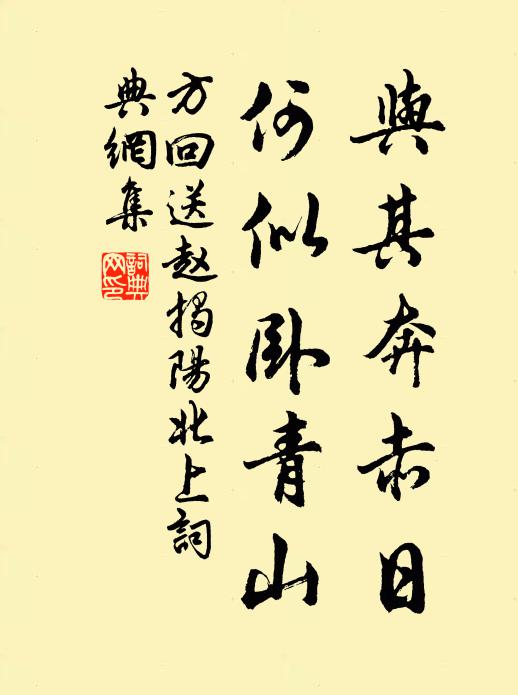 與其奔赤日
何似卧青山
方回送赵揭陽北上詞
典網集
詞典网印